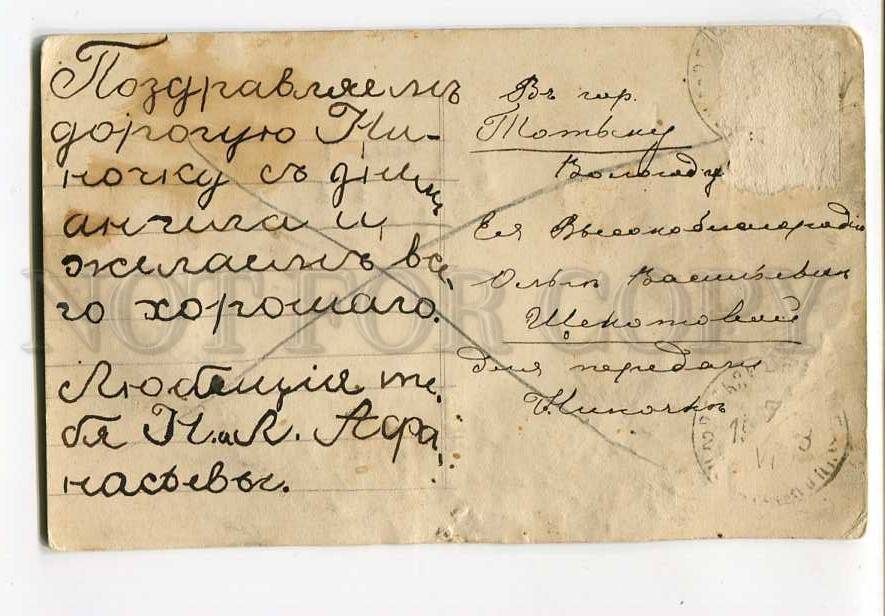 Поздравляемъ
дорогую Ни-
ночку съ днемъ
ангила и
желаемъ все-
го хорошаго.
Любящія те-
бя Н. и Л. Афа-
насьевы.
Въ гор.
Тотьму
Вологод
Ея Высокоблагородію
Ольгѣ Васильевнѣ
Щекотовой
для передачи
Ниночкѣ
NOT FOR COPY